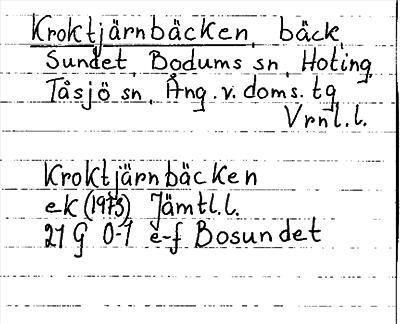 Kroktjärnbäcken, bäck,
Sundet, Bodums sn, Hoting,
Tåsjö sn, Ång.v.doms.tg
Vrnl.l.
Kroktjärnbäcken
ek (1973) Jämtl.l.
21 G 0-1 e-f Bosundet